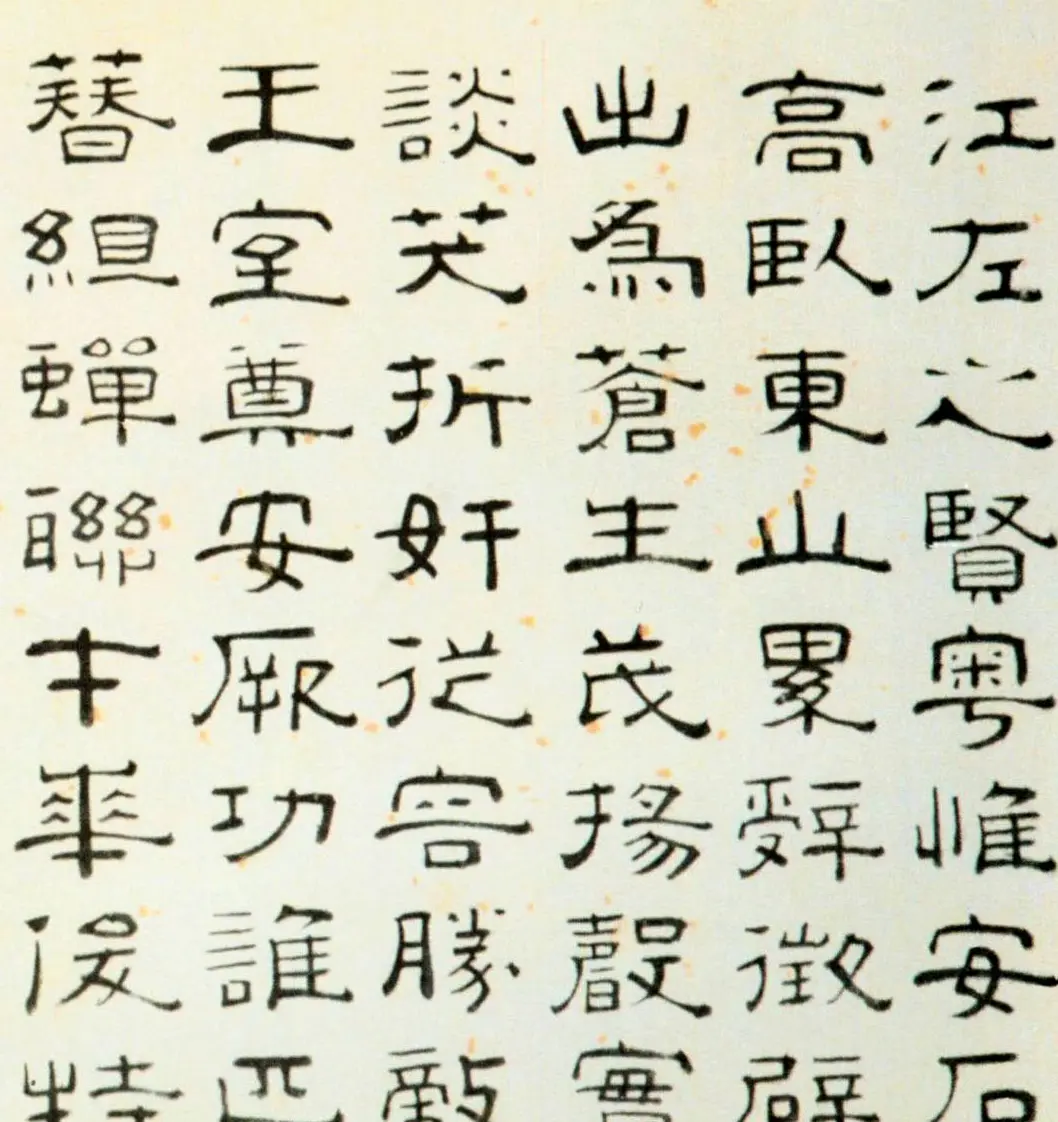 江左之賢粤惟安石
高臥東山累辭徵辟
出爲蒼生茂揚聲實
談笑折奸從容勝敵
王室尊安厥功誰匹
簮組蟬聯才華俊特